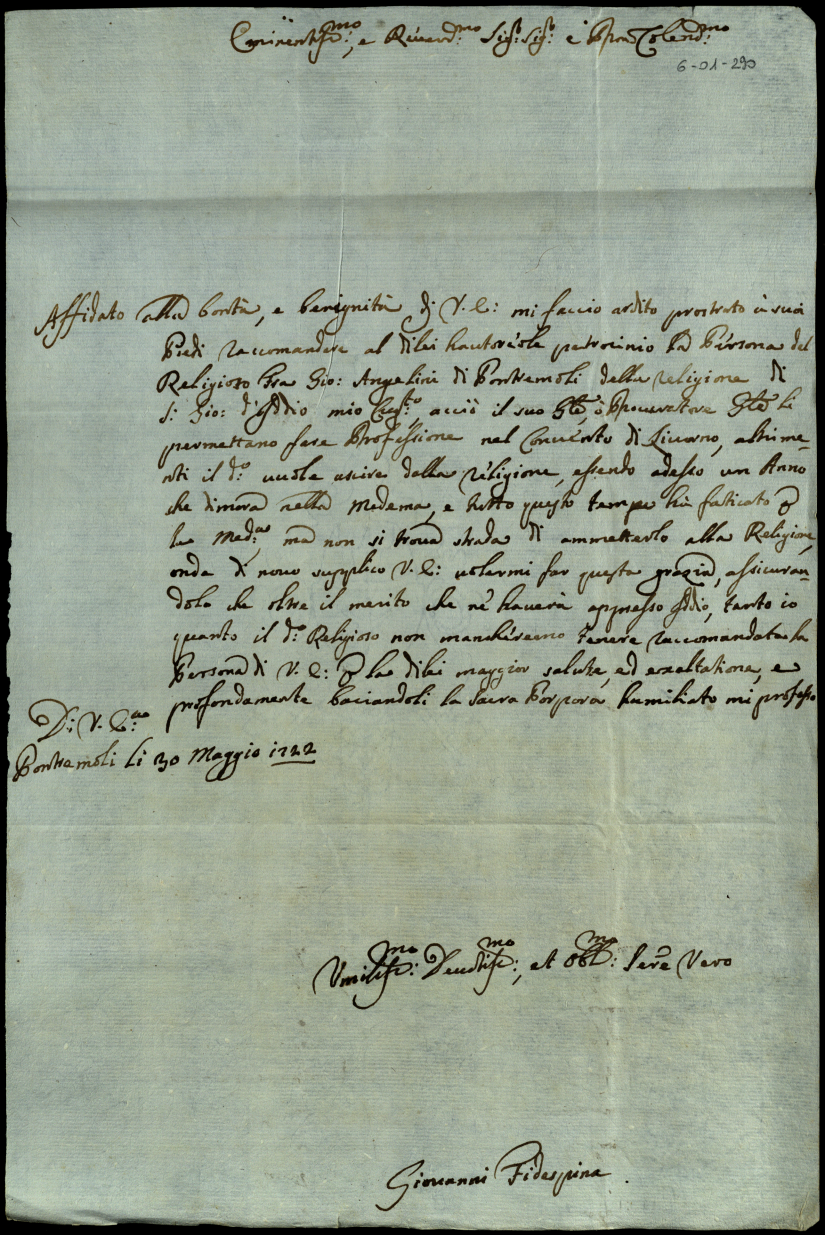 Eminentiss:mo, e Reuerend:mo Sig:r Sig:r e Pron Colend:mo
6-01-290
Affidato alla bontà, e benignità di V. E: mi faccio ardito prostrato à suoi
Piedi raccomandare al dilei hautoreuole patrocinio la Persona del
Religioso Fra Gio: Angelini di Pontremoli della religione di
S: Gio: d'Iddio mio, acciò il suo Gle, ò Procuratore Gle li
permettano fare Professione nel Conuento di Liuorno, altrime=
nti il d:o uuole uscire dalla religione, essendo adesso un Anno
che dimora nella Medema, e tutto questo tempo hà faticato p
la Med:a, ma non si troua strada di ammetterlo alla Religione,
onde di nouo supplico V. E: uolermi far questa grazia, assicuran=
dola che oltre il merito che nè hauerà appresso Iddio, tanto io
quanto il d:o Religioso non mancheremo tenere raccomandata la
Persona di V. E: p la dilei maggior salute, ed exaltatione, e
profondamente baciandoli la Sacra Porpora humiliato mi professo
Di V. E:a
Pontremoli li 30 Maggio 1722
Vmiliss:mo Deuotiss:mo, et Obl:mo Sere Vero
Giouanni Fidespina.